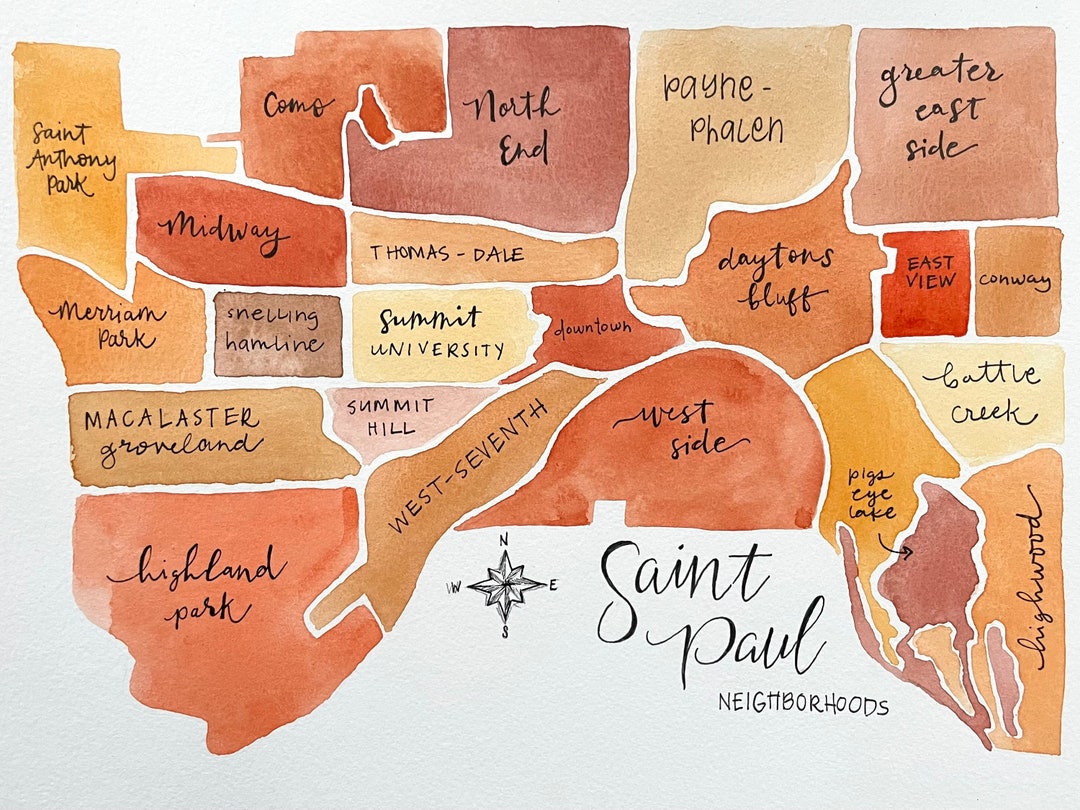 Saint
Anthony
Park
Como
North
End
Payne-
Phalen
greater
east
side
Midway
THOMAS-DALE
daytons
bluff
EAST
VIEW
conway
Merriam
Park
snelling
hamline
Summit
UNIVERSITY
downtown
battle
creek
MACALASTER
groveland
SUMMIT
HILL
WEST-SEVENTH
west
side
pigs
eye
lake
highwood
highland
park
N
W
E
S
Saint
Paul
NEIGHBORHOODS